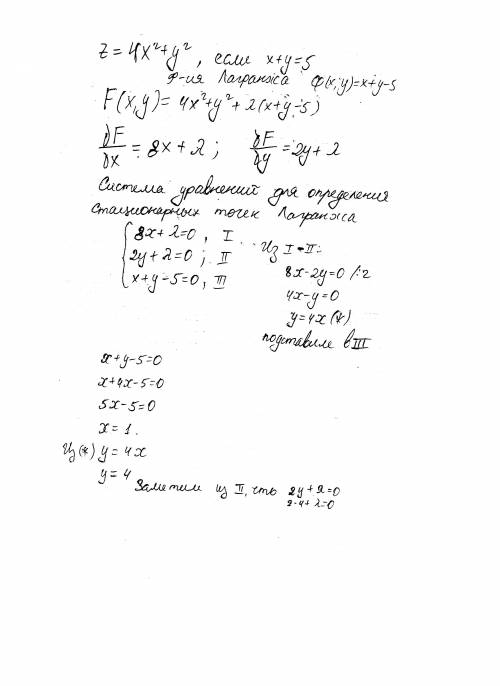 z = 4x² + y², если x+y=5
ф-ия Лагранжа φ(x,y)=x+y-5
F(x,y) = 4x²+y²+λ(x+y-5)
∂F/∂x = 8x+λ; ∂F/∂y = 2y+λ
Система уравнений для определения
стационарных точек Лагранжа
{ 8x+λ=0, I
2y+λ=0; II
x+y-5=0, III
Из I-II:
8x-2y=0 /:2
4x-y=0
y=4x (*)
подставим в III
x+y-5=0
x+4x-5=0
5x-5=0
x=1.
Из (*) y=4x
y=4
Заметим из II, что 2y+λ=0
2·4+λ=0